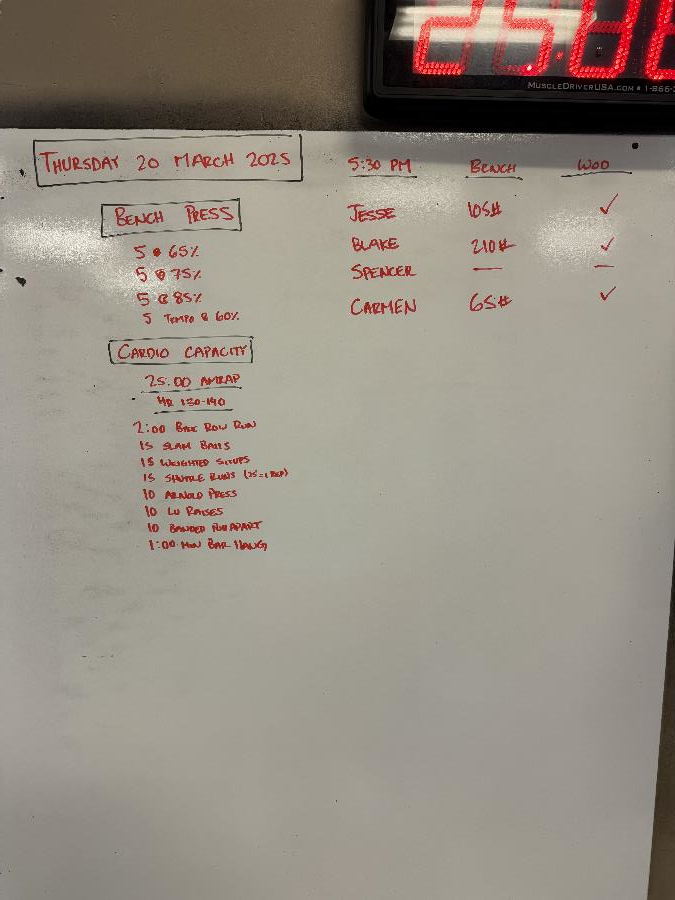 25:
MUSCLEDRIVERUSA.COM • 1-866-
THURSDAY 20 MARCH 2025
BENCH PRESS
5 @ 65%
5 @ 75%
5 @ 85%
5 TEMPO @ 60%
CARDIO CAPACITY
25:00 AMRAP
HR 130-140
2:00 BIKE ROW RUN
15 SLAM BALLS
15 WEIGHTED SITUPS
15 SHUTTLE RUNS (25'=1 REP)
10 ARNOLD PRESS
10 LU RAISES
10 BANDED PULL APART
1:00 MIN BAR HANG
5:30 PM BENCH WOD
JESSE 105# ✓
BLAKE 210# ✓
SPENCER — —
CARMEN 65# ✓